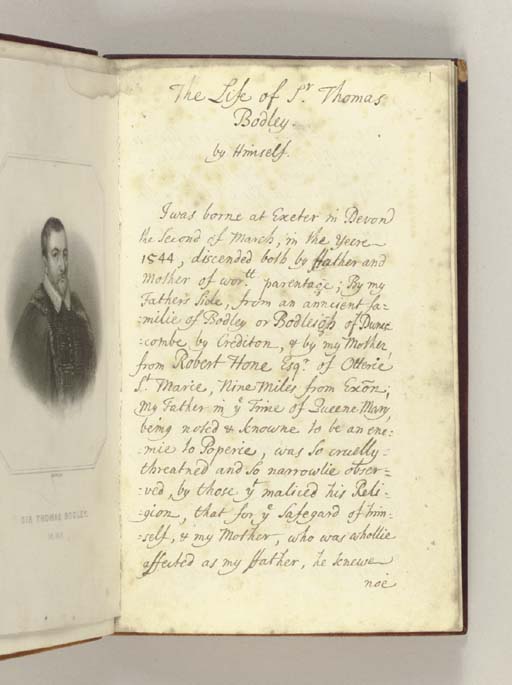 1
The Life of Sr. Thomas
Bodley.
by Himself.
I was borne at Exeter in Devon
the Second of March, in the Yeere
1544, discended both by ffather and
Mother of wor.tt parentage; By my
Fathers Side, from an anncient fa-
=milie of Bodley or Bodleigh of Dunes
=combe by Crediton, & by my Mother
from Robert Hone Esqr. of Otterie
St. Marie, Nine Miles from Exōn;
My Father in ye Time of Queene Mary,
being noted & knowne to be an ene=
=mie to Poperie, was so cruelly
threatned and so narrowlie obser=
=ved, by those yt maliced his Reli=
=gion, that for ye Safegard of him=
=self, & my Mother, who was whollie
affected as my ffather, he knewe
noe
SIR THOMAS BODLEY.